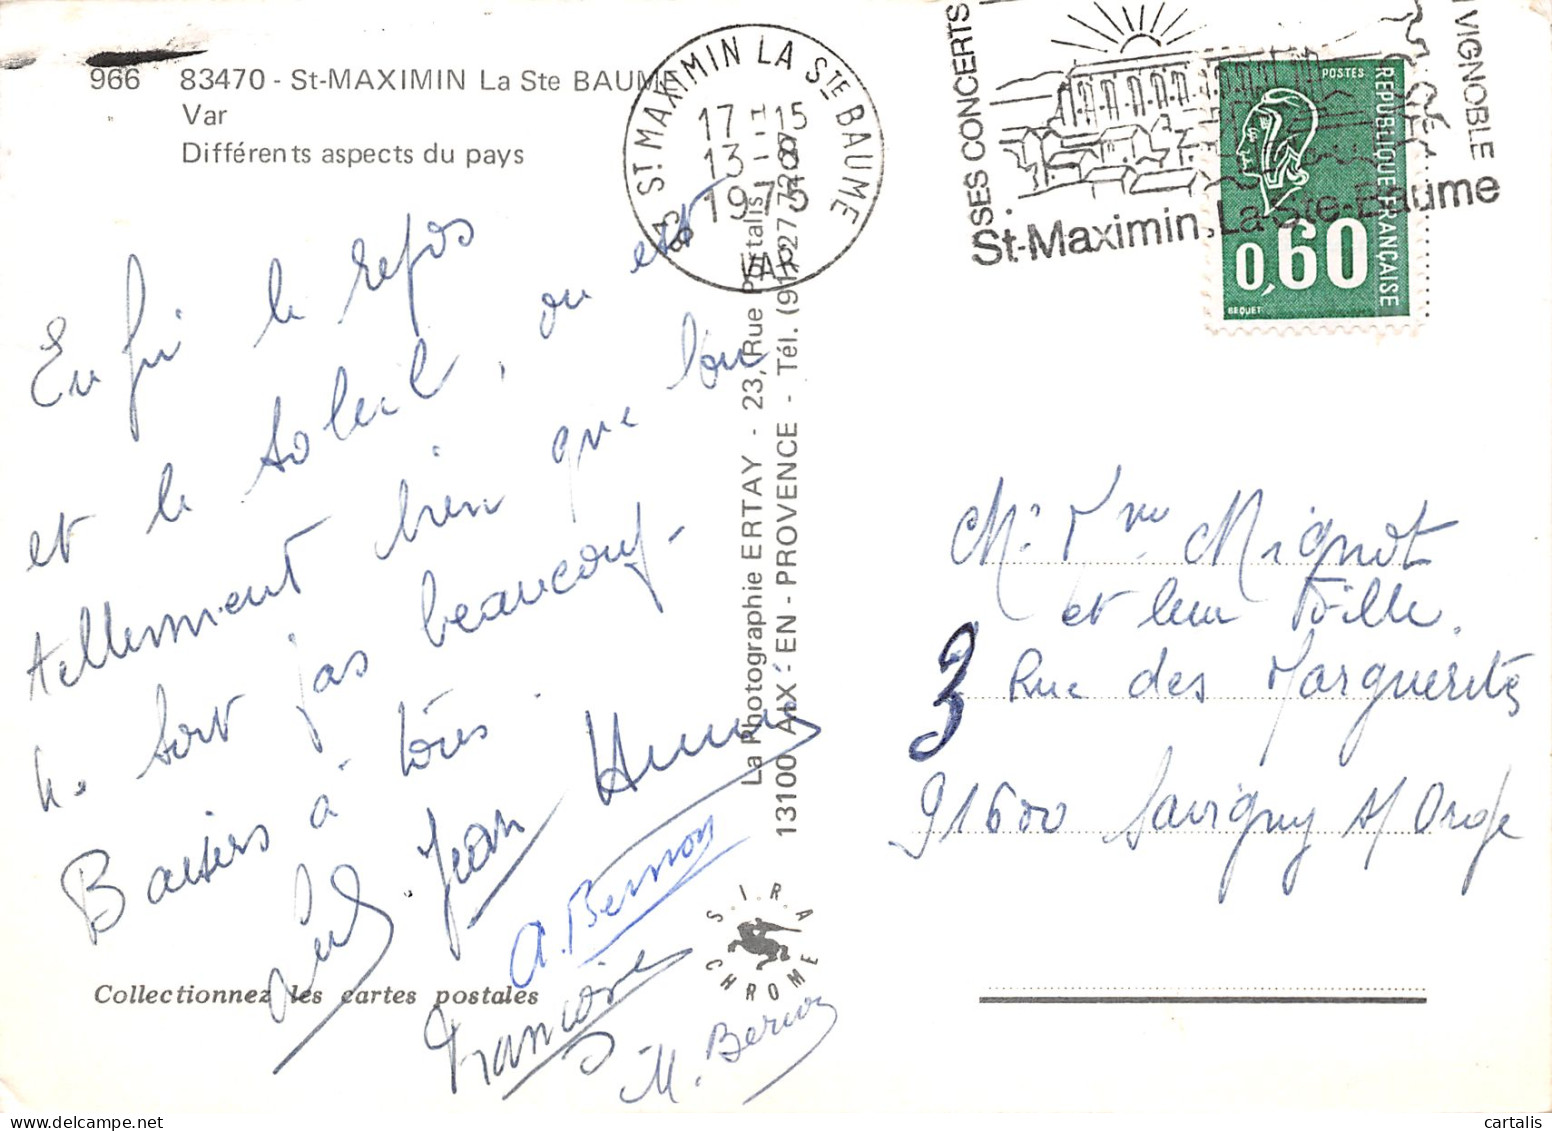 966 83470 - St-MAXIMIN La Ste BAUME
Var
Différents aspects du pays
83 ST MAXIMIN LA STE BAUME
17 - 15
13 - 8
1975
VAR
SES CONCERTS
VIGNOBLE
St-Maximin, La-Ste-Baume
POSTES
REPUBLIQUE FRANÇAISE
0,60
BEQUET
Enfin le repos
et le soleil, on est
tellement bien que l'on
ne sort pas beaucoup -
Baisers à tous
Jean
A. Bernon
Françoise
M. Bernon
La Photographie ERTAY - 23, Rue Portalis
13100 AIX-EN-PROVENCE - Tél. (91) 27 72 87
S.I.R.A
CHROME
Collectionnez les cartes postales
Mr et Mme Mignot
et leur Fille.
3 Rue des Marguerites
91600 Savigny s/ Orge
cartalis